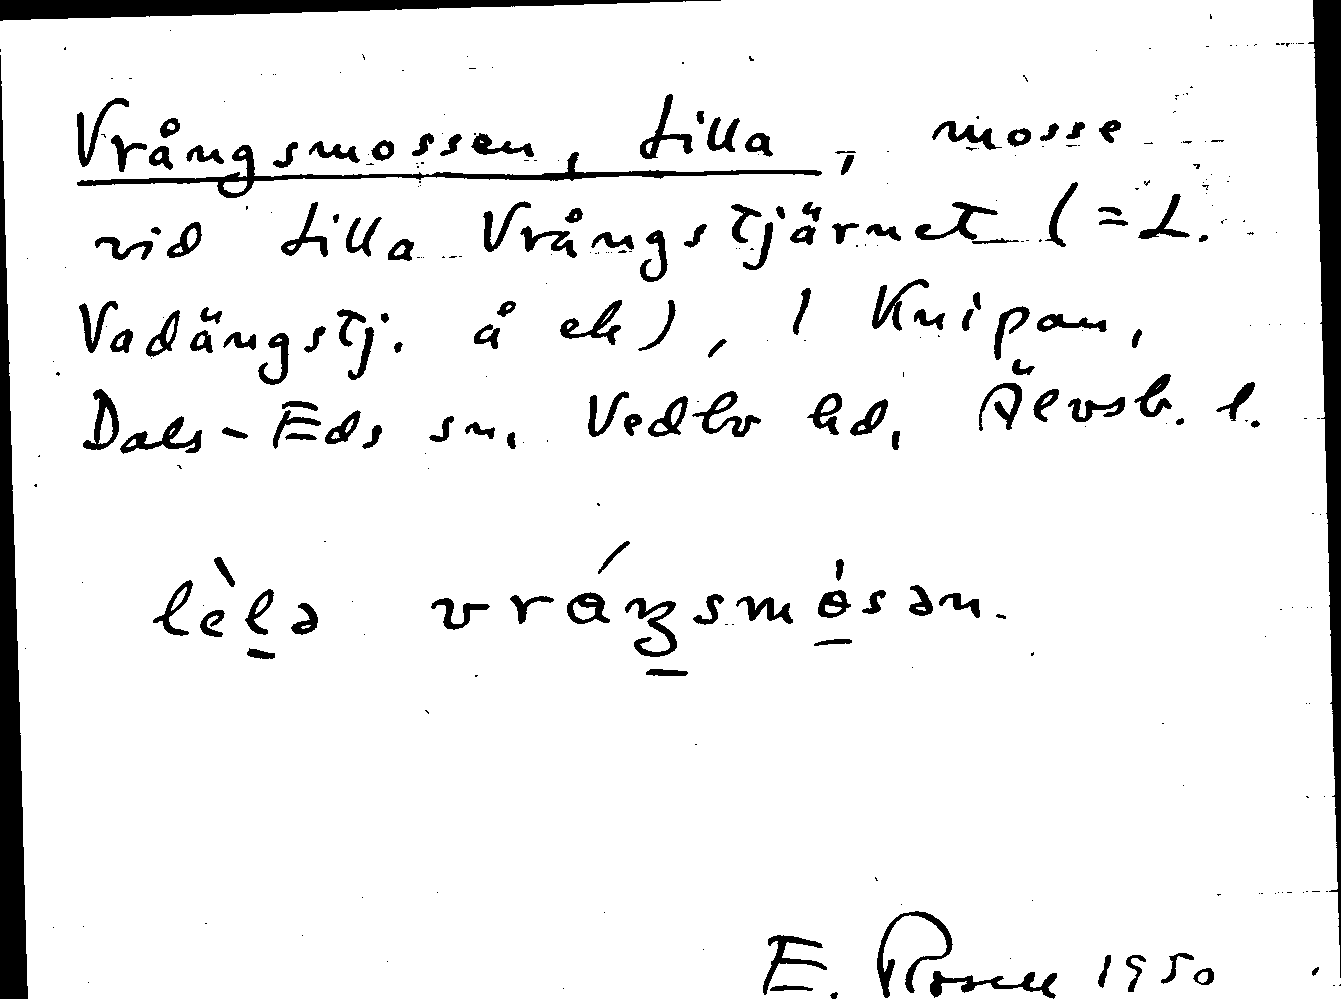 Vrångsmossen, Lilla, mosse
vid Lilla Vrångstjärnet (=L.
Vadängstj. å ek), 1 Knipan,
Dals-Eds sn, Vedbo hd, Älvsb. l.
lèlə vráŋsmósən.
E. Rosell 1950